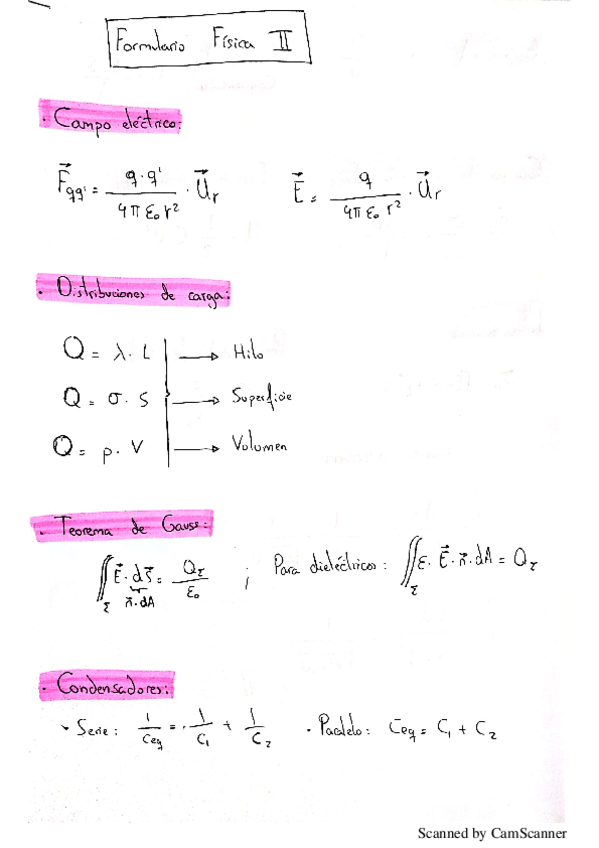 Formulario Física II
· Campo eléctrico:
F⃗qq' = q·q' / 4π ε₀ r² · U⃗r    E⃗ = q / 4π ε₀ r² · U⃗r
· Distribuciones de carga:
Q = λ · L → Hilo
Q = σ · S → Superficie
Q = ρ · V → Volumen
· Teorema de Gauss:
∬Σ E⃗ · dS⃗ = QΣ / ε₀ ; Para dieléctricos: ∬Σ ε · E⃗ · n⃗ · dA = QΣ
n⃗ · dA
· Condensadores:
· Serie: 1/Ceq = 1/C₁ + 1/C₂  · Paralelo: Ceq = C₁ + C₂
Scanned by CamScanner